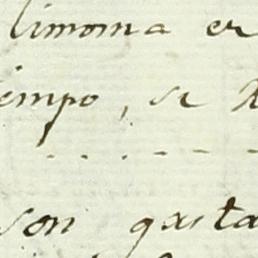 limosna er
empo, se
son gasta